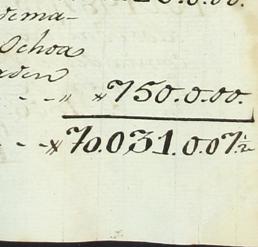 dema-
Ochoa
- - " " 750.0.00.
- - - 70.031.0.07½